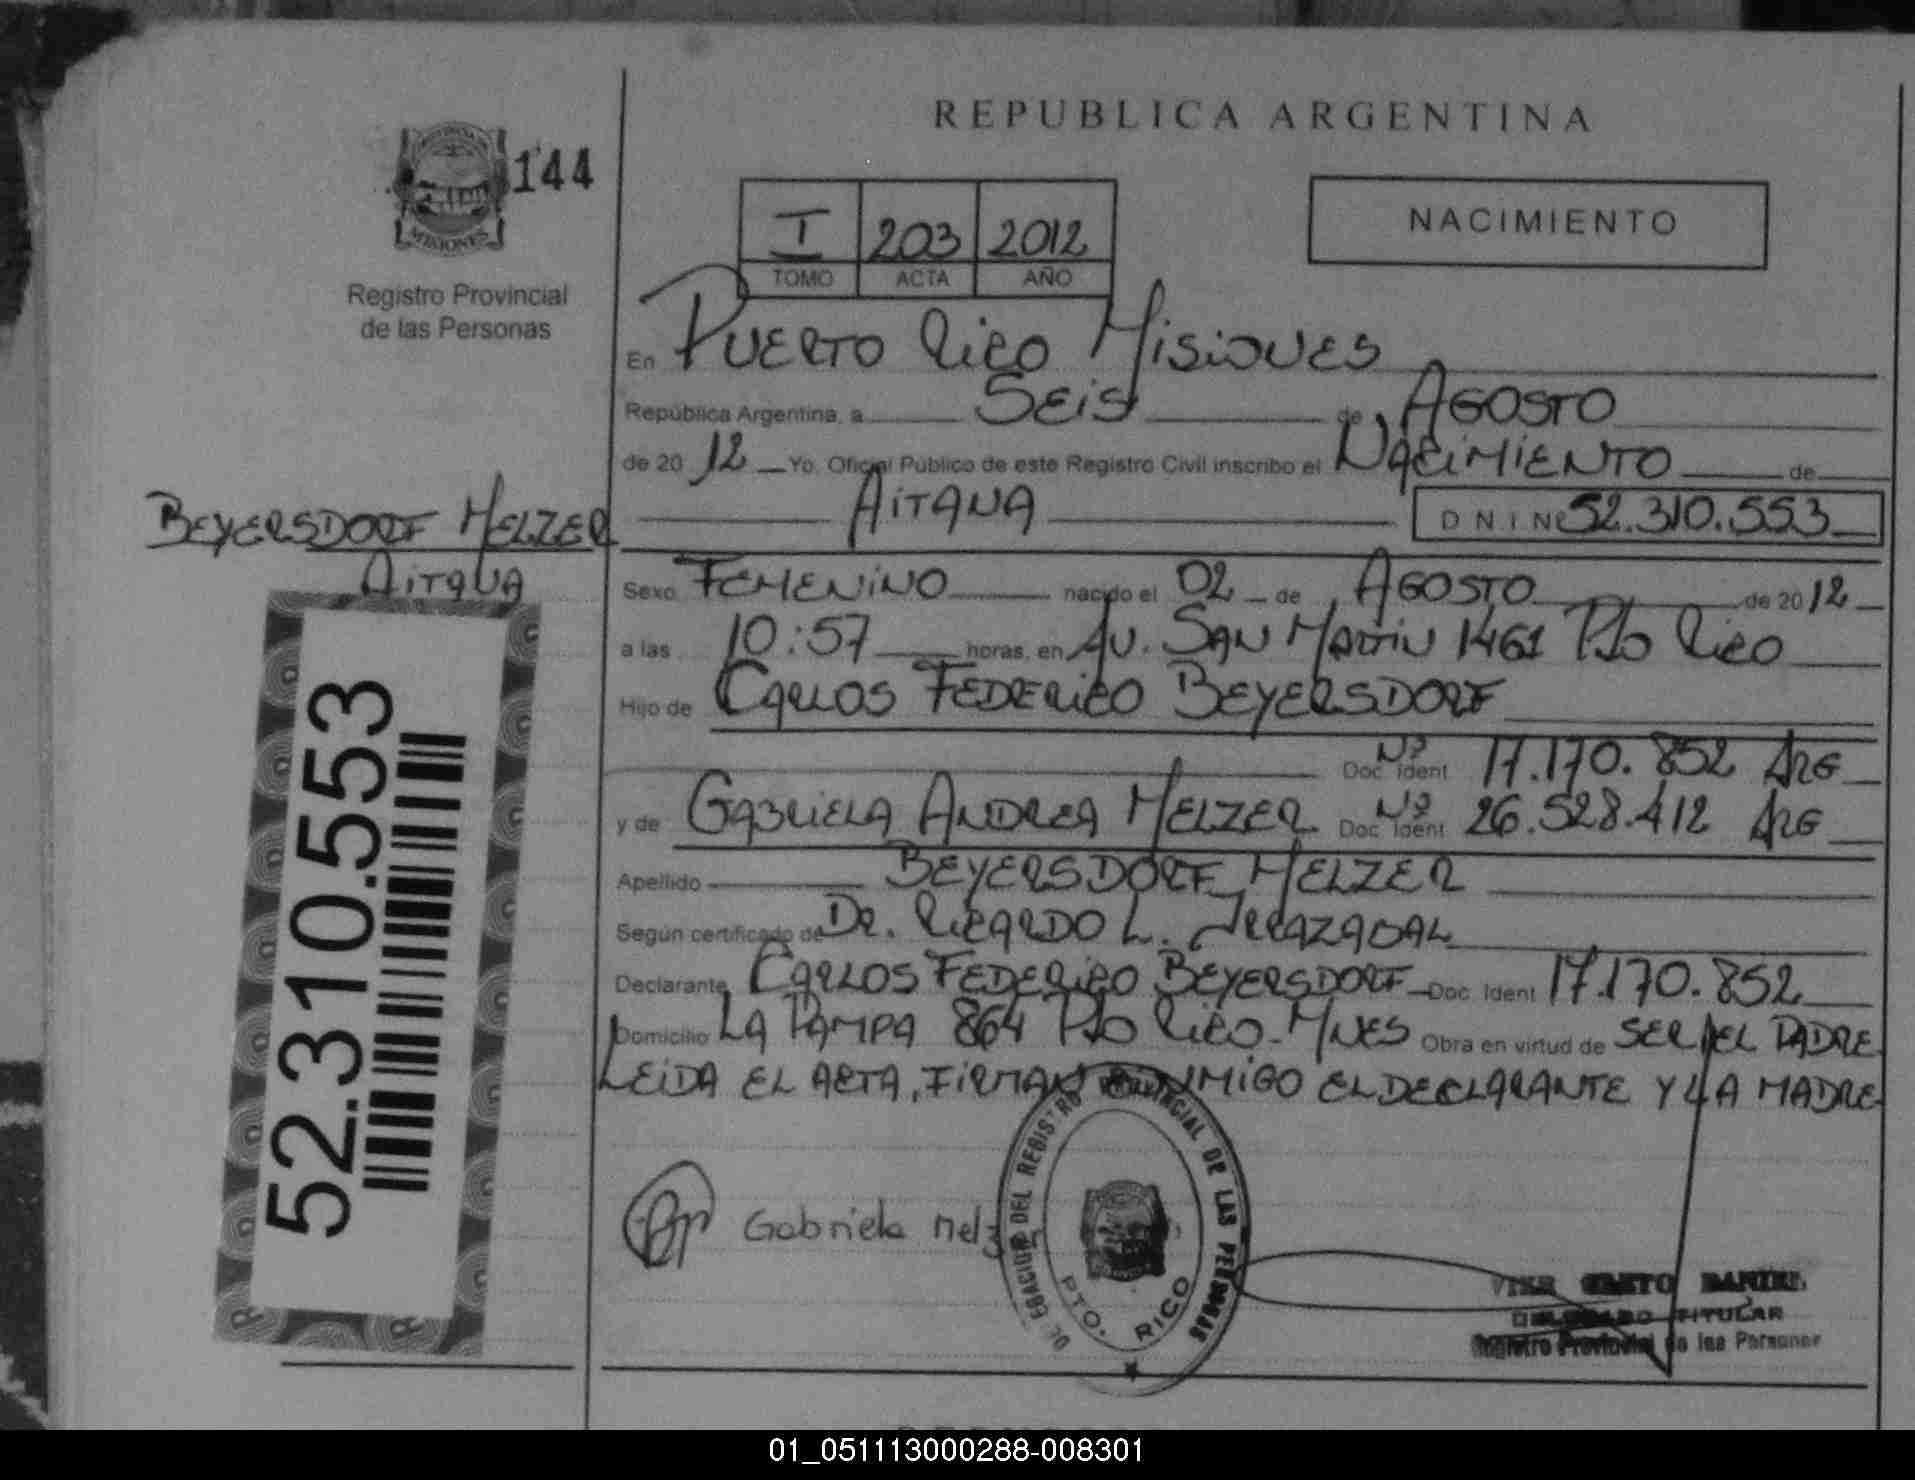 REPUBLICA ARGENTINA
144
MISIONES
Registro Provincial
de las Personas
I 203 2012
TOMO ACTA AÑO
NACIMIENTO
En Puerto Rico Misiones
República Argentina, a Seis de Agosto
de 20 12 Yo, Oficial Público de este Registro Civil inscribo el Nacimiento de
Aitana D N I Nº 52.310.553
Beyersdorf Melzer
Aitana
Sexo Femenino nacido el 02 de Agosto de 20 12
a las 10:57 horas, en Av. San Martin 1461 Pto Rico
Hijo de Carlos Federico Beyersdorf
Nº Doc. Ident 17.170.852 Arg
y de Gabriela Andrea Melzer Nº Doc. Ident 26.528.412 Arg
Apellido Beyersdorf Melzer
Según certificado de Dr. Ricardo L. Irrazabal
Declarante Carlos Federico Beyersdorf Doc. Ident 17.170.852
Domicilio La Pampa 864 Pto Rico - Mnes Obra en virtud de ser el padre
Leida el acta, firman conmigo el declarante y la madre
52.310.553
Gabriela Melz
DELEGACION DEL REGISTRO PROVINCIAL DE LAS PERSONAS
PTO. RICO
DANIEL
DELEGADO TITULAR
Registro Provincial de las Personas
01_051113000288-008301